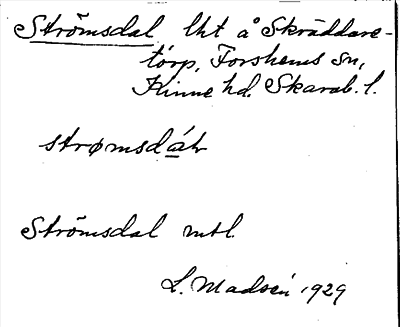 Strömsdal lht å Skräddare-
torp, Forshems sn,
Kinne hd. Skarab. l.
strømsdáɫ
Strömsdal mtl.
L. Madsén 1929